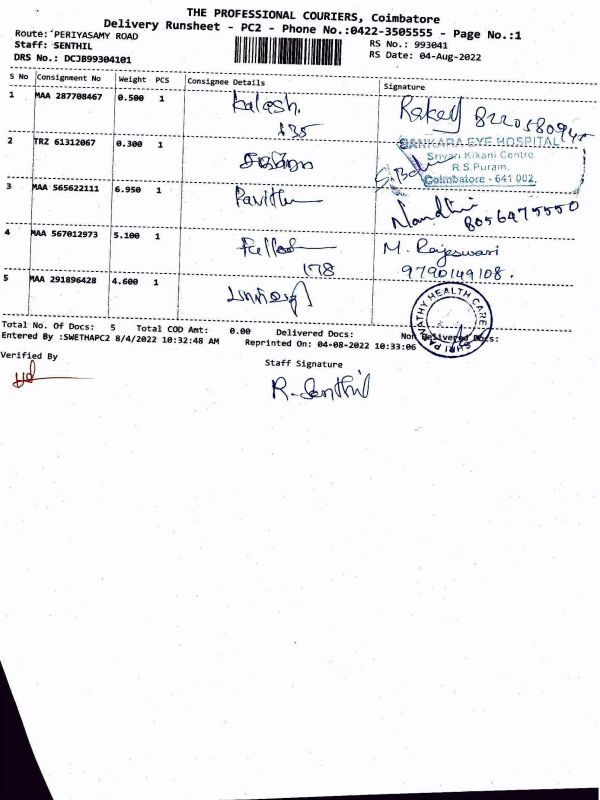 THE PROFESSIONAL COURIERS, Coimbatore
Delivery Runsheet - PC2 - Phone No.:0422-3505555 - Page No.:1
Route: PERIYASAMY ROAD
RS No.: 993041
Staff: SENTHIL
RS Date: 04-Aug-2022
DRS No.: DCJB99304101
S No Consignment No Weight PCS Consignee Details Signature
1 MAA 287708467 0.500 1 Kalesh.
135
2 TRZ 61312067 0.300 1
SANKARA EYE HOSPITAL
Srivari Kikani Centre
R.S.Puram,
Coimbatore - 641 002.
3 MAA 565622111 6.950 1 Pavithr Nandhini 8056475550
4 MAA 567012973 5.100 1 M. Rajeswari
178 9790149108.
5 MAA 291896428 4.600 1
SHRI PARVATHY HEALTH CARE
Total No. Of Docs: 5 Total COD Amt: 0.00 Delivered Docs: Non Delivered Docs:
Entered By :SWETHAPC2 8/4/2022 10:32:48 AM Reprinted On: 04-08-2022 10:33:06
Verified By
Staff Signature
R. Senthil